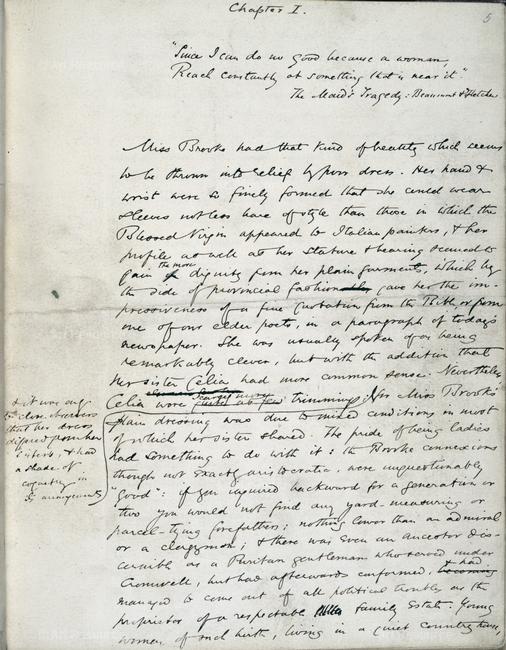 Chapter I.
5
"Since I can do no good because a woman,
Reach constantly at something that is near it."
The Maid's Tragedy: Beaumont & Fletcher
Miss Brooke had that kind of beauty which seems
to be thrown into relief by poor dress. Her hand &
wrist were so finely formed that she could wear
sleeves not less bare of style than those in which the
Blessed Virgin appeared to Italian painters, & her
profile as well as her stature & bearing seemed to
the more
gain dignity from her plain garments, which by
the side of provincial fashion gave her the im-
pressiveness of a fine quotation from the Bible or from
one of our elder poets, in a paragraph of today's
newspaper. She was usually spoken of as being
remarkably clever, but with the addition that
her sister Celia had more common sense. Nevertheless
scarcely more
Celia wore trimmings
& it was only
to close observers
that her dress
differed from her
sister's, & had
a shade of
coquetry in
its arrangements
for Miss Brooke's
plain dressing was due to mixed conditions in most
of which her sister shared. The pride of being ladies
had something to do with it: the Brooke connexions
though not exactly aristocratic, were unquestionably
"good": if you inquired backward for a generation or
two you would not find any yard-measuring or
parcel-tying forefathers; nothing lower than an admiral
or a clergyman; & there was even an ancestor dis-
cernible as a Puritan gentleman who served under
Cromwell, but had afterwards conformed, & had
managed to come out of all political troubles as the
proprietor of a respectable family estate. Young
women of such birth, living in a quiet country house,